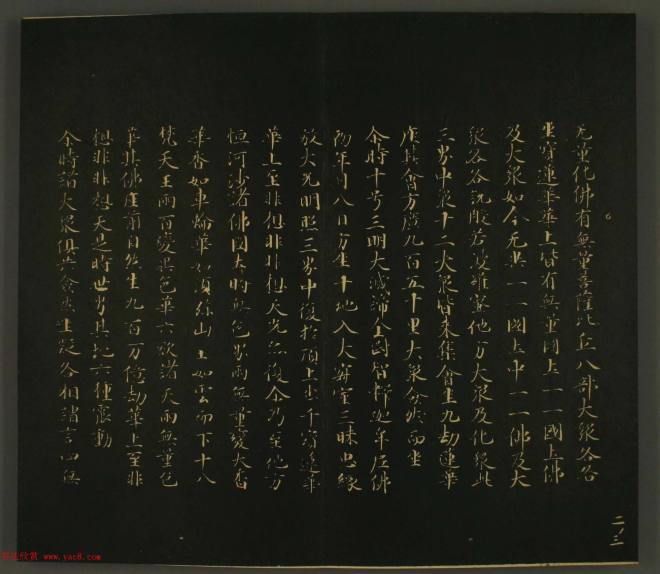 无量化佛有無量菩薩比丘八部大衆各各
坐寶蓮華華上皆有無量國土一一國土佛
及大衆如今无異一一國土中一一佛及大
衆各各說般若波羅蜜他方大衆及化衆此
三界中衆十二大衆皆來集會坐九劫蓮華
座其會方廣九百五十里大衆僉然而坐
尒時十号三明大滅諦金剛智釋迦牟尼佛
初年月八日方坐十地入大寂室三昧思緣
放大光明照三界中復於頂上出千寶蓮華
華上至非想非非想天光亦復尒乃至他方
恒河沙諸佛國土時無色界雨無量變大香
華香如車輪華如須弥山王如雲而下十八
梵天王雨百變異色華六欲諸天雨無量色
華其佛座前自然生九百万億劫華上至非
想非非想天是時世界其地六種震動
尒時諸大衆俱共僉然生疑各相謂言四無
二ノ三
www.yac8.com